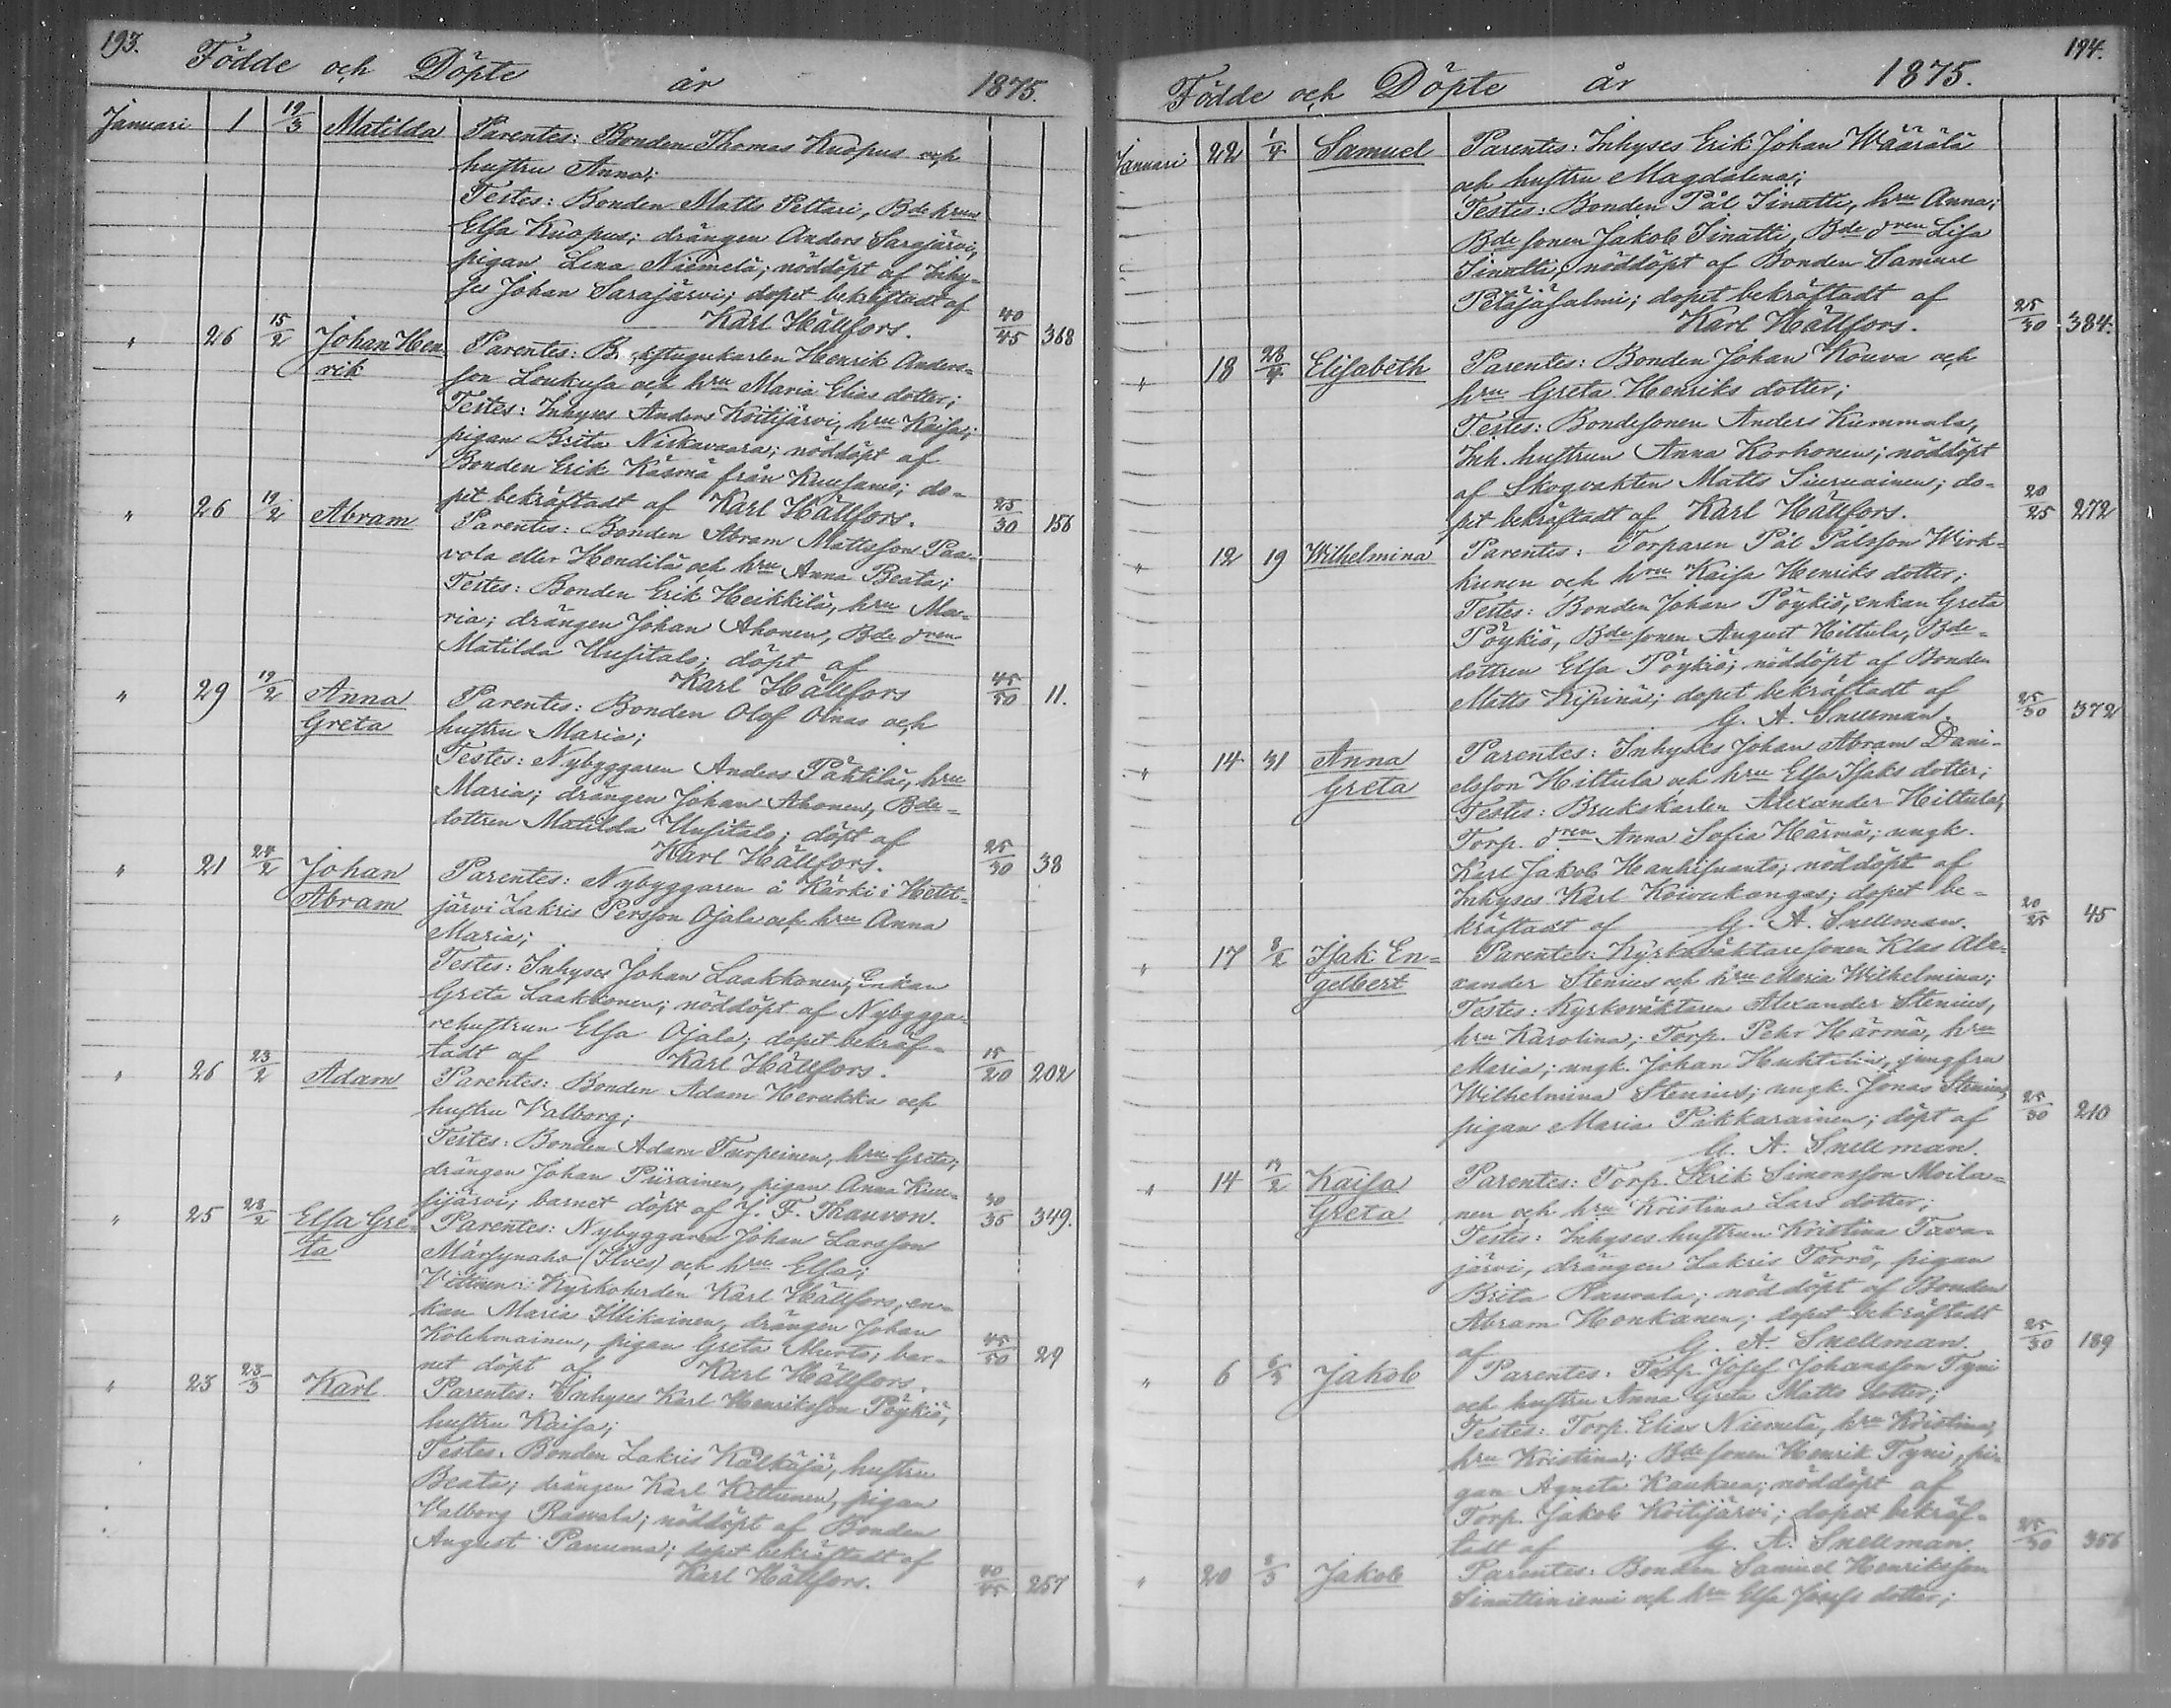 193.
Födde och Döpte år 1875.
Januari 1 19/3 Matilda Parentes: Bonden Thomas Kuopus och
hustru Anna;
Testes: Bonden Matts Pettari, Bde hrun
Elsa Kuopus; drängen Anders Sarajärvi,
pigan Lena Niemelä; nöddöpt af Inhy-
ses Johan Sarajärvi; dopet bekräftadt af
Karl Hällfors. 40/45 368
" 26 15/2 Johan Hen Parentes: B kstugukarlen Henrik Anders-
rik son Loukusa och hru Maria Elias dotter;
Testes: Inhyses Anders Koitijärvi, hru Kaisa;
pigan Brita Nivkavaara; nöddöpt af
Bonden Erik Käsmä från Kuusamo; do-
pet bekräftadt af Karl Hällfors. 25/30 156
" 26 19/2 Abram Parentes: Bonden Abram Mattsson Paa-
vola eller Hendilä och hru Anna Beata;
Testes: Bonden Erik Heikkilä, hru Ma-
ria; drängen Johan Ahonen, Bde dren
Matilda Uusitalo; döpt af
Karl Hällfors 45/50 11.
" 29 19/2 Anna Parentes: Bonden Olof Oinas och
Greta hustru Maria;
Testes: Nybyggaren Anders Pahtila, hru
Maria; drängen Johan Ahonen, Bde-
dottren Matilda Uusitalo; döpt af
Karl Hällfors. 25/30 38
" 21 24/2 Johan Parentes: Nybyggaren å Kärki i Hetet-
Abram järvi Zakris Persson Ojala och hru Anna
Maria;
Testes: Inhyses Johan Laakkonen, Enkan
Greta Laakkonen; nöddöpt af Nybygga-
rehustrun Elsa Ojala; dopet bekräf-
tadt af Karl Hällfors. 15/20 202
" 26 23/2 Adam Parentes: Bonden Adam Kerukka och
hustru Valborg;
Testes: Bonden Adam Turpeinen, hru Greta;
drängen Johan Piirainen, pigan Anna Kuu-
sijärvi; barnet döpt af J. F. Thauvon. 30/35 349.
" 25 28/2 Elsa Gre- Parentes: Nybyggaren Johan Larsson
ta Märsynaho (Ilves) och hru Elsa;
Vittnen: Kyrkoherden Karl Hällfors, en-
kan Maria Illikainen, drängen Johan
Kolehmainen, pigan Greta Murto; bar-
net döpt af Karl Hällfors. 45/50 29
" 23 23/3 Karl Parentes: Inhyses Karl Henriksson Pöykiö,
hustru Kaisa;
Testes: Bonden Zakris Kälkäjä, hustru
Beata; drängen Karl Kettunen, pigan
Valborg Räsvala; nöddöpt af Bonden
August Panuma; dopet bekräftadt af
Karl Hällfors. 40/45 257
194.
Födde och Döpte år 1875.
Januari 22 1/4 Samuel Parentes: Inhyses Erik Johan Wäärälä
och hustru Magdalena;
Testes: Bonden Pål Sinetti, hru Anna;
Bde sonen Jakob Sinatti, Bde dren Lisa
Sinatti; nöddöpt af Bonden Samuel
Petäjäsalmi; dopet bekräftadt af
Karl Hällfors. 25/30 384.
" 18 28/4 Elisabeth Parentes: Bonden Johan Kouva och
hru Greta Henriks dotter;
Testes: Bondesonen Anders Kummala,
Inh. hustrun Anna Korhonen; nöddöpt
af Skogvakten Matts Siuruainen; do-
pet bekräftadt af Karl Hällfors. 20/25 272
" 12 19 Wilhelmina Parentes: Torparen Pål Pålsson Wirk-
kunen och hru Kaisa Henriks dotter;
Testes: Bonden Johan Pöykiö, enkan Greta
Pöykiö, Bde sonen August Hiltula, Bde-
dottren Elsa Pöykiö; nöddöpt af Bonden
Matts Kipinä; dopet bekräftadt af
G. A. Snellman. 25/30 372
" 14 31 Anna Parentes: Inhyses Johan Abram Dani-
Greta elsson Hiltula och hru Elsa Isaks dotter;
Testes: Brukskarlen Alexander Hiltula,
Torp. dren Anna Sofia Härmä; ungk.
Karl Jakob Hanhisuanto; nöddöpt af
Inhyses Karl Koivukangas; dopet be-
kräftadt af G. A. Snellman. 20/25 45
" 17 8/2 Isak En- Parentes: Kyrkoväktaresonen Klas Ale-
gelbert xander Stenius och hru Maria Wilhelmina;
Testes: Kyrkoväktaren Alexander Stenius,
hru Karolina; Torp. Pehr Härmä, hru
Maria; ungk. Johan Huhtelin, jungfru
Wilhelmina Stenius; ungk. Jonas Stenius,
pigan Maria Pikkarainen; döpt af 25/30 210
G. A. Snellman.
" 14 14/2 Kaisa Parentes: Torp. Erik Simonsson Moila-
Greta nen och hru Kristina Lars dotter;
Testes: Inhyses hustrun Kristina Tava-
järvi, drängen Zakris Törrö, pigan
Brita Rauvala; nöddöpt af Bonden
Abram Honkanen; dopet bekräftadt
af G. A. Snellman. 25/30 189
" 6 6/3 Jakob Parentes: Torp. Josef Johansson Tyni
och hustru Anna Greta Matts dotter;
Testes: Torp. Elias Niemelä, hru Kristina,
hru Kristina; Bde sonen Henrik Tyni, pi-
gan Agneta Kaukua; nöddöpt af
Torp. Jakob Koitijärvi; dopet bekräf-
tadt af G. A. Snellman. 25/30 356
" 20 8/3 Jakob Parentes: Bonden Samuel Henriksson
Sinettiniemi och hru Elsa Josefs dotter;